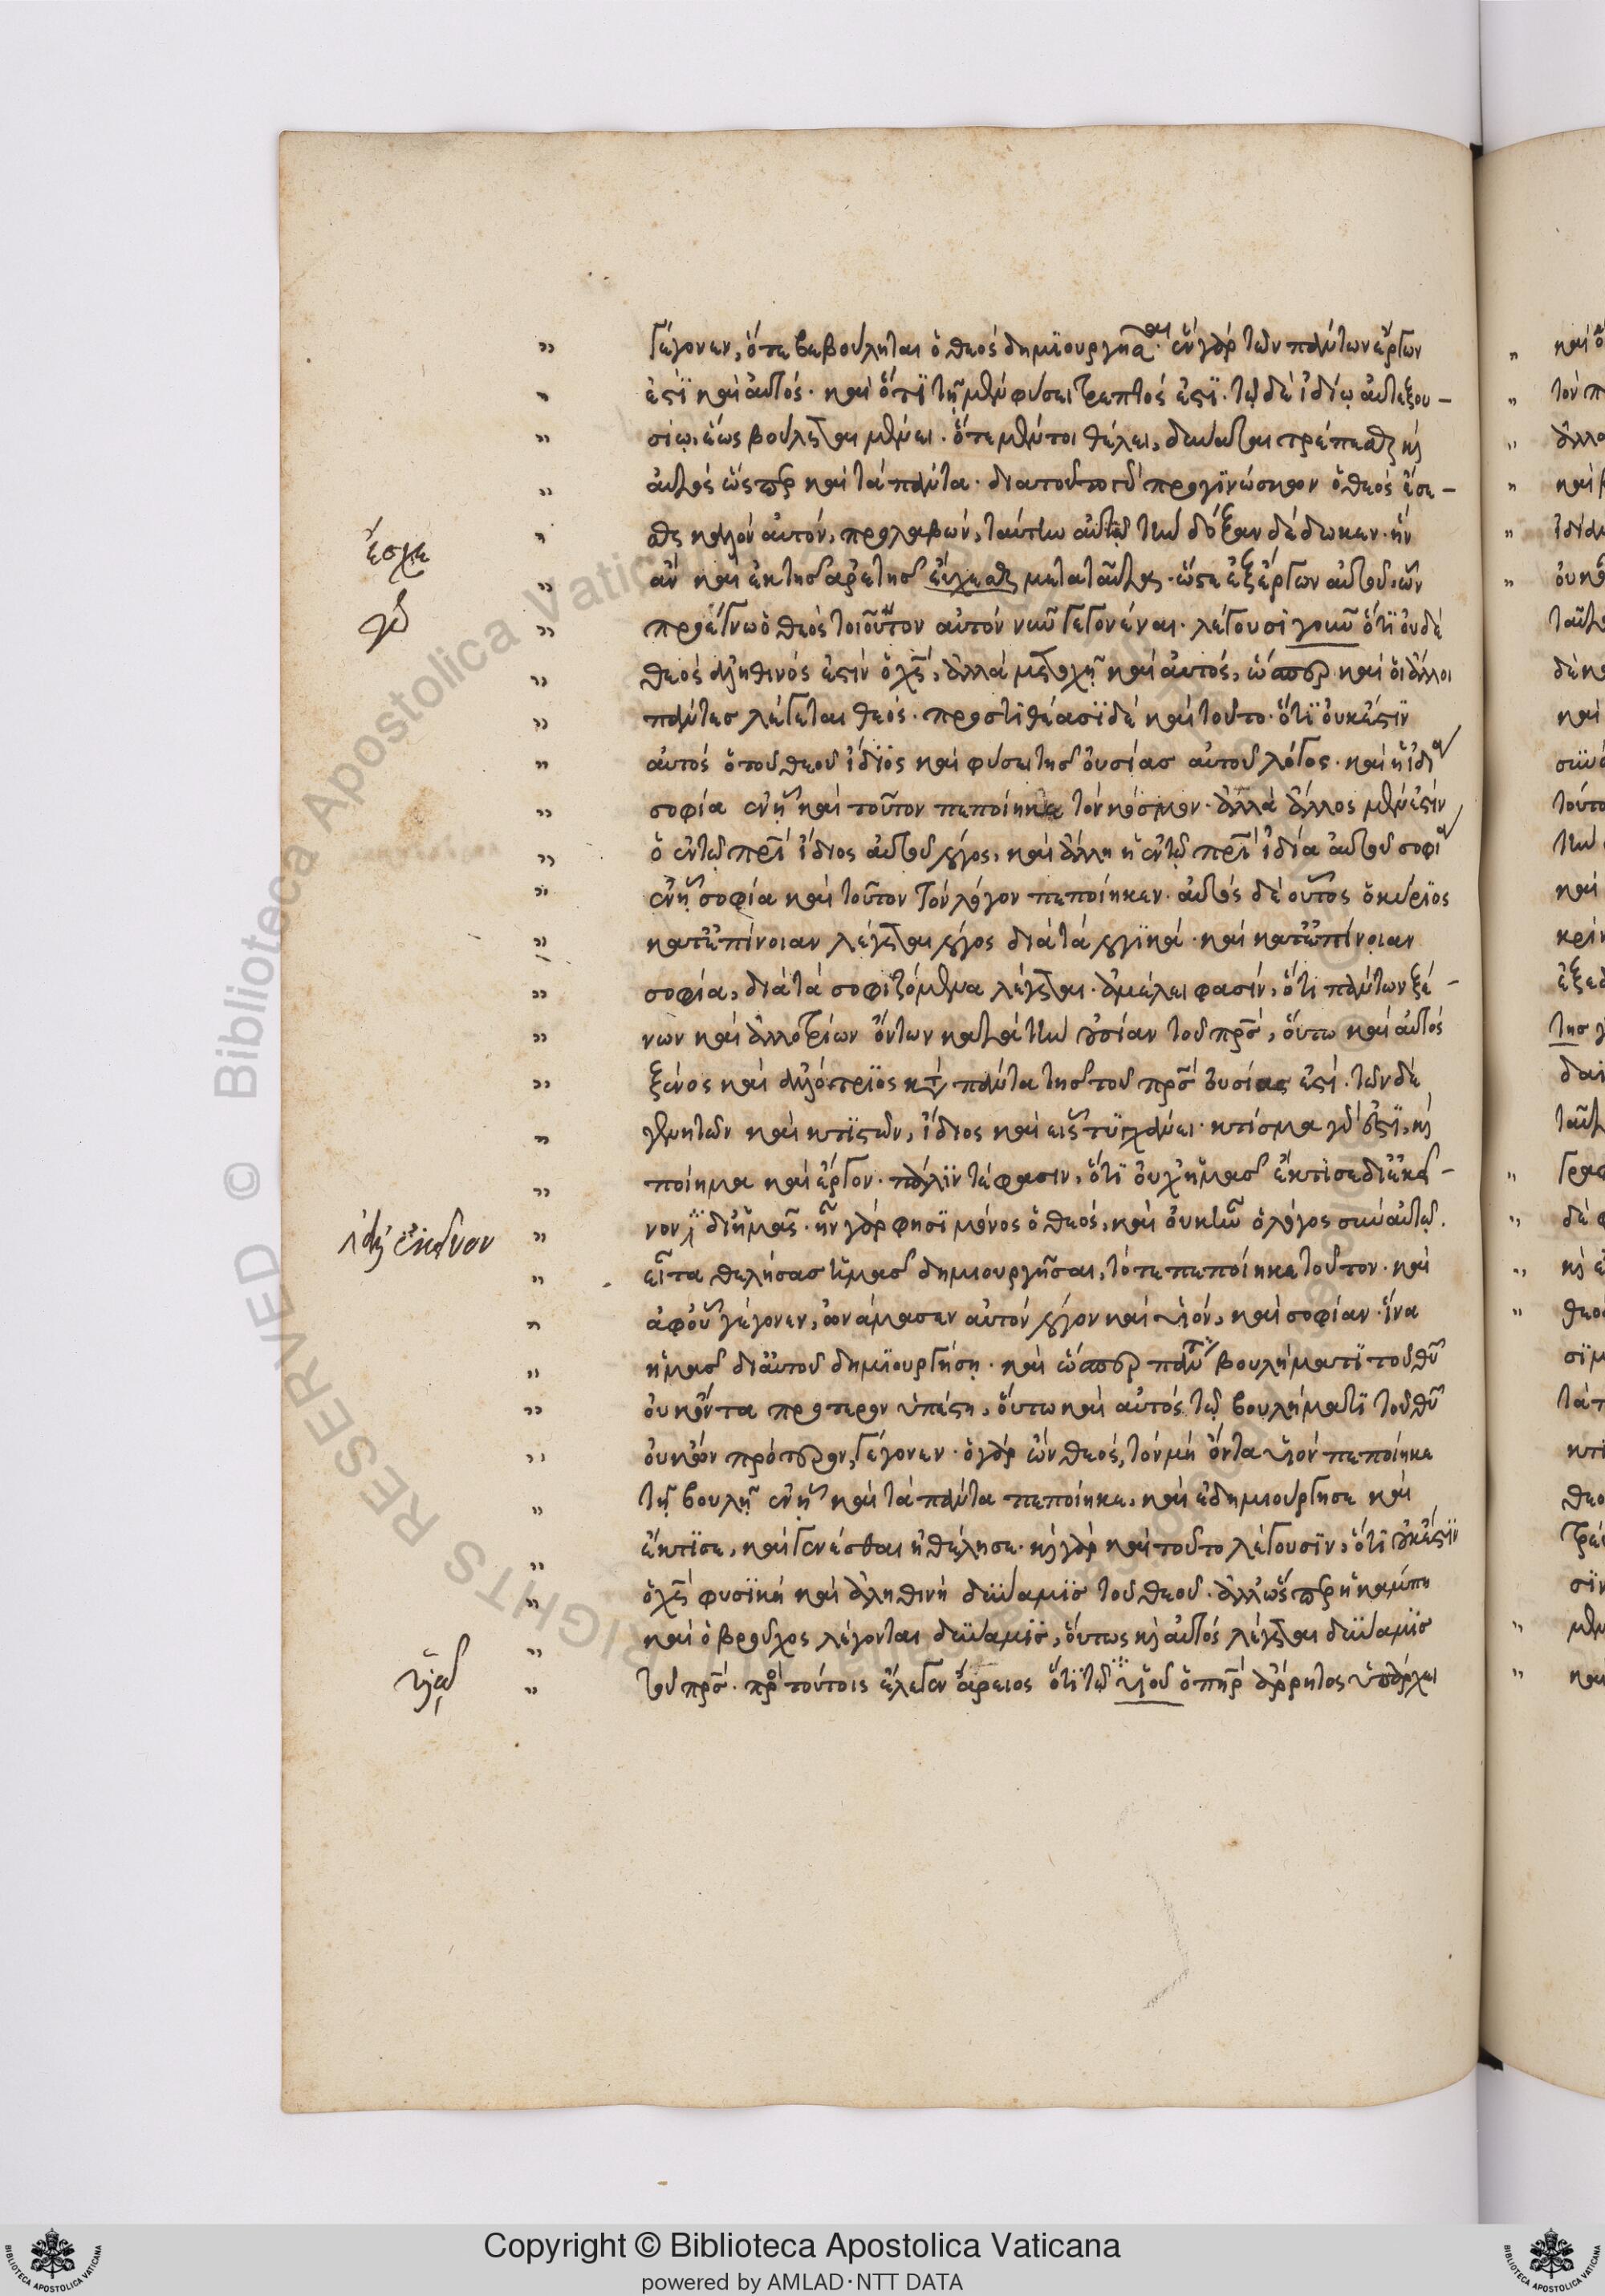 γέγονεν, ὅτε βεβούληται ὁ θεός δημϊουργῆσαι· ἕν γάρ τῶν πάντων ἔργων
ἐστὶ καὶ αὐτός· καὶ ὅτι τῇ μέν φύσει τρεπτός ἐστὶ· τῷ δὲ ἰδίῳ αὐτεξου-
σίῳ, ἕως βούλεται μένει· ὅτε μέντοι θέλει, δύναται τρέπεσθαι καὶ
αὐτός ὥσπερ καὶ τά πάντα· διατοῦτο γάρ προγινώσκων ὁ θεός ἔσε-
σθαι καλόν αὐτόν, προλαβών, ταύτην αὐτῷ τήν δόξαν δέδωκεν· ἥν
ἄν καὶ ἐκ τῆς ἀρετῆς ἔχεσθαι μετά ταῦτα· ὥστε ἐξ ἔργων αὐτοῦ, ὧν
προέγνω ὁ θεός τοιοῦτον αὐτόν νῦν γεγονέναι· λέγουσι γοῦν ὅτι οὐδέ
θεός ἀληθινός ἐστίν ὁ χς, ἀλλά μετοχῇ καὶ αὐτός, ὥσπερ καὶ οἱ ἄλλοι
πάντες λέγεται θεός· προστιθέασϊ δέ καὶ τοῦτο· ὅτι οὐκ ἔστιν
αὐτός ὁ τοῦ θεοῦ ἴδιος καὶ φύσει τῆς οὐσίας αὐτοῦ λόγος· καὶ ἡ ἰδία
σοφία ἐν ᾗ καὶ τοῦτον πεποίηκε τόν κόσμον· ἀλλά ἄλλος μέν ἐστίν
ὁ ἐν τῷ πρι ἴδιος αὐτοῦ λόγος, καὶ ἄλλη ἡ ἐν τῷ πρι ἰδία αὐτοῦ σοφία
ἐν ᾗ σοφία καὶ τοῦτον τόν λόγον πεποίηκεν· αὐτός δέ οὗτος ὁ κύριος
κατ' ἐπίνοιαν λέγεται λόγος διά τά λογικά· καὶ κατ' ἐπίνοιαν
σοφία, διά τά σοφιζόμενα λέγεται· ἀμέλει φασίν, ὅτι πάντων ξέ-
νων καὶ ἀλλοτρίων ὄντων κατά τήν οὐσίαν τοῦ πρς, οὕτω καὶ αὐτός
ξένος καὶ ἀλλότριος κατά πάντα τῆς τοῦ πρς οὐσίας ἐστί· τῶν δέ
γενητῶν καὶ κτιστῶν, ἴδιος καὶ εἷς τυγχάνει· κτίσμα γάρ ἐστϊ, καὶ
ποίημα καὶ ἔργον· πάλιν τέ φασιν, ὅτι οὐχ ἡμᾶς ἔκτισε δι' ἐκεῖ-
νον δι' ἡμᾶς· ἦν γάρ φησὶ μόνος ὁ θεός, καὶ οὐκ ἦν ὁ λόγος σύν αὐτῷ.
εἶτα θελήσας ἡμᾶς δημιουργῆσαι, τότε πεποίηκε τοῦτον· καὶ
ἀφ' οὗ γέγονεν, ὠνόμασεν αὐτόν λόγον καὶ υἱόν, καὶ σοφίαν· ἵνα
ἡμᾶς δι' αὐτοῦ δημϊουργήσῃ· καὶ ὥσπερ πάντα βουλήματϊ τοῦ θυ
οὐκ ὄντα πρότερον ὑπέστη, οὕτω καὶ αὐτός τῷ βουλήματϊ τοῦ θυ
οὐκ ὤν πρότερον, γέγονεν· ὁ γάρ ὤν θεός, τόν μή ὄντα υἱόν πεποίηκε
τῇ βουλῇ ἐν ᾗ καὶ τά πάντα πεποίηκε, καὶ ἐδημιούργησε καὶ
ἔκτισε, καὶ γενέσθαι ἠθέλησε· καὶ γάρ καὶ τοῦτο λέγουσϊν, ὅτι οὐκ ἔστιν
ὁ χς φυσϊκή καὶ ἀληθινή δύναμϊς τοῦ θεοῦ· ἀλλ' ὥσπερ ἡ κάμπη
καὶ ὁ βροῦχος λέγονται δύναμϊς, οὕτως καὶ αὐτός λέγεται δύναμϊς
τοῦ πρς· πρό τούτοις ἔλεγεν ἄρειος ὅτι τῷ υἱοῦ ὁ πηρ ἄρρητος ὑπάρχει
ἔσχε
γάρ
ἀλλ' ἐκεῖνον
υἱῷ